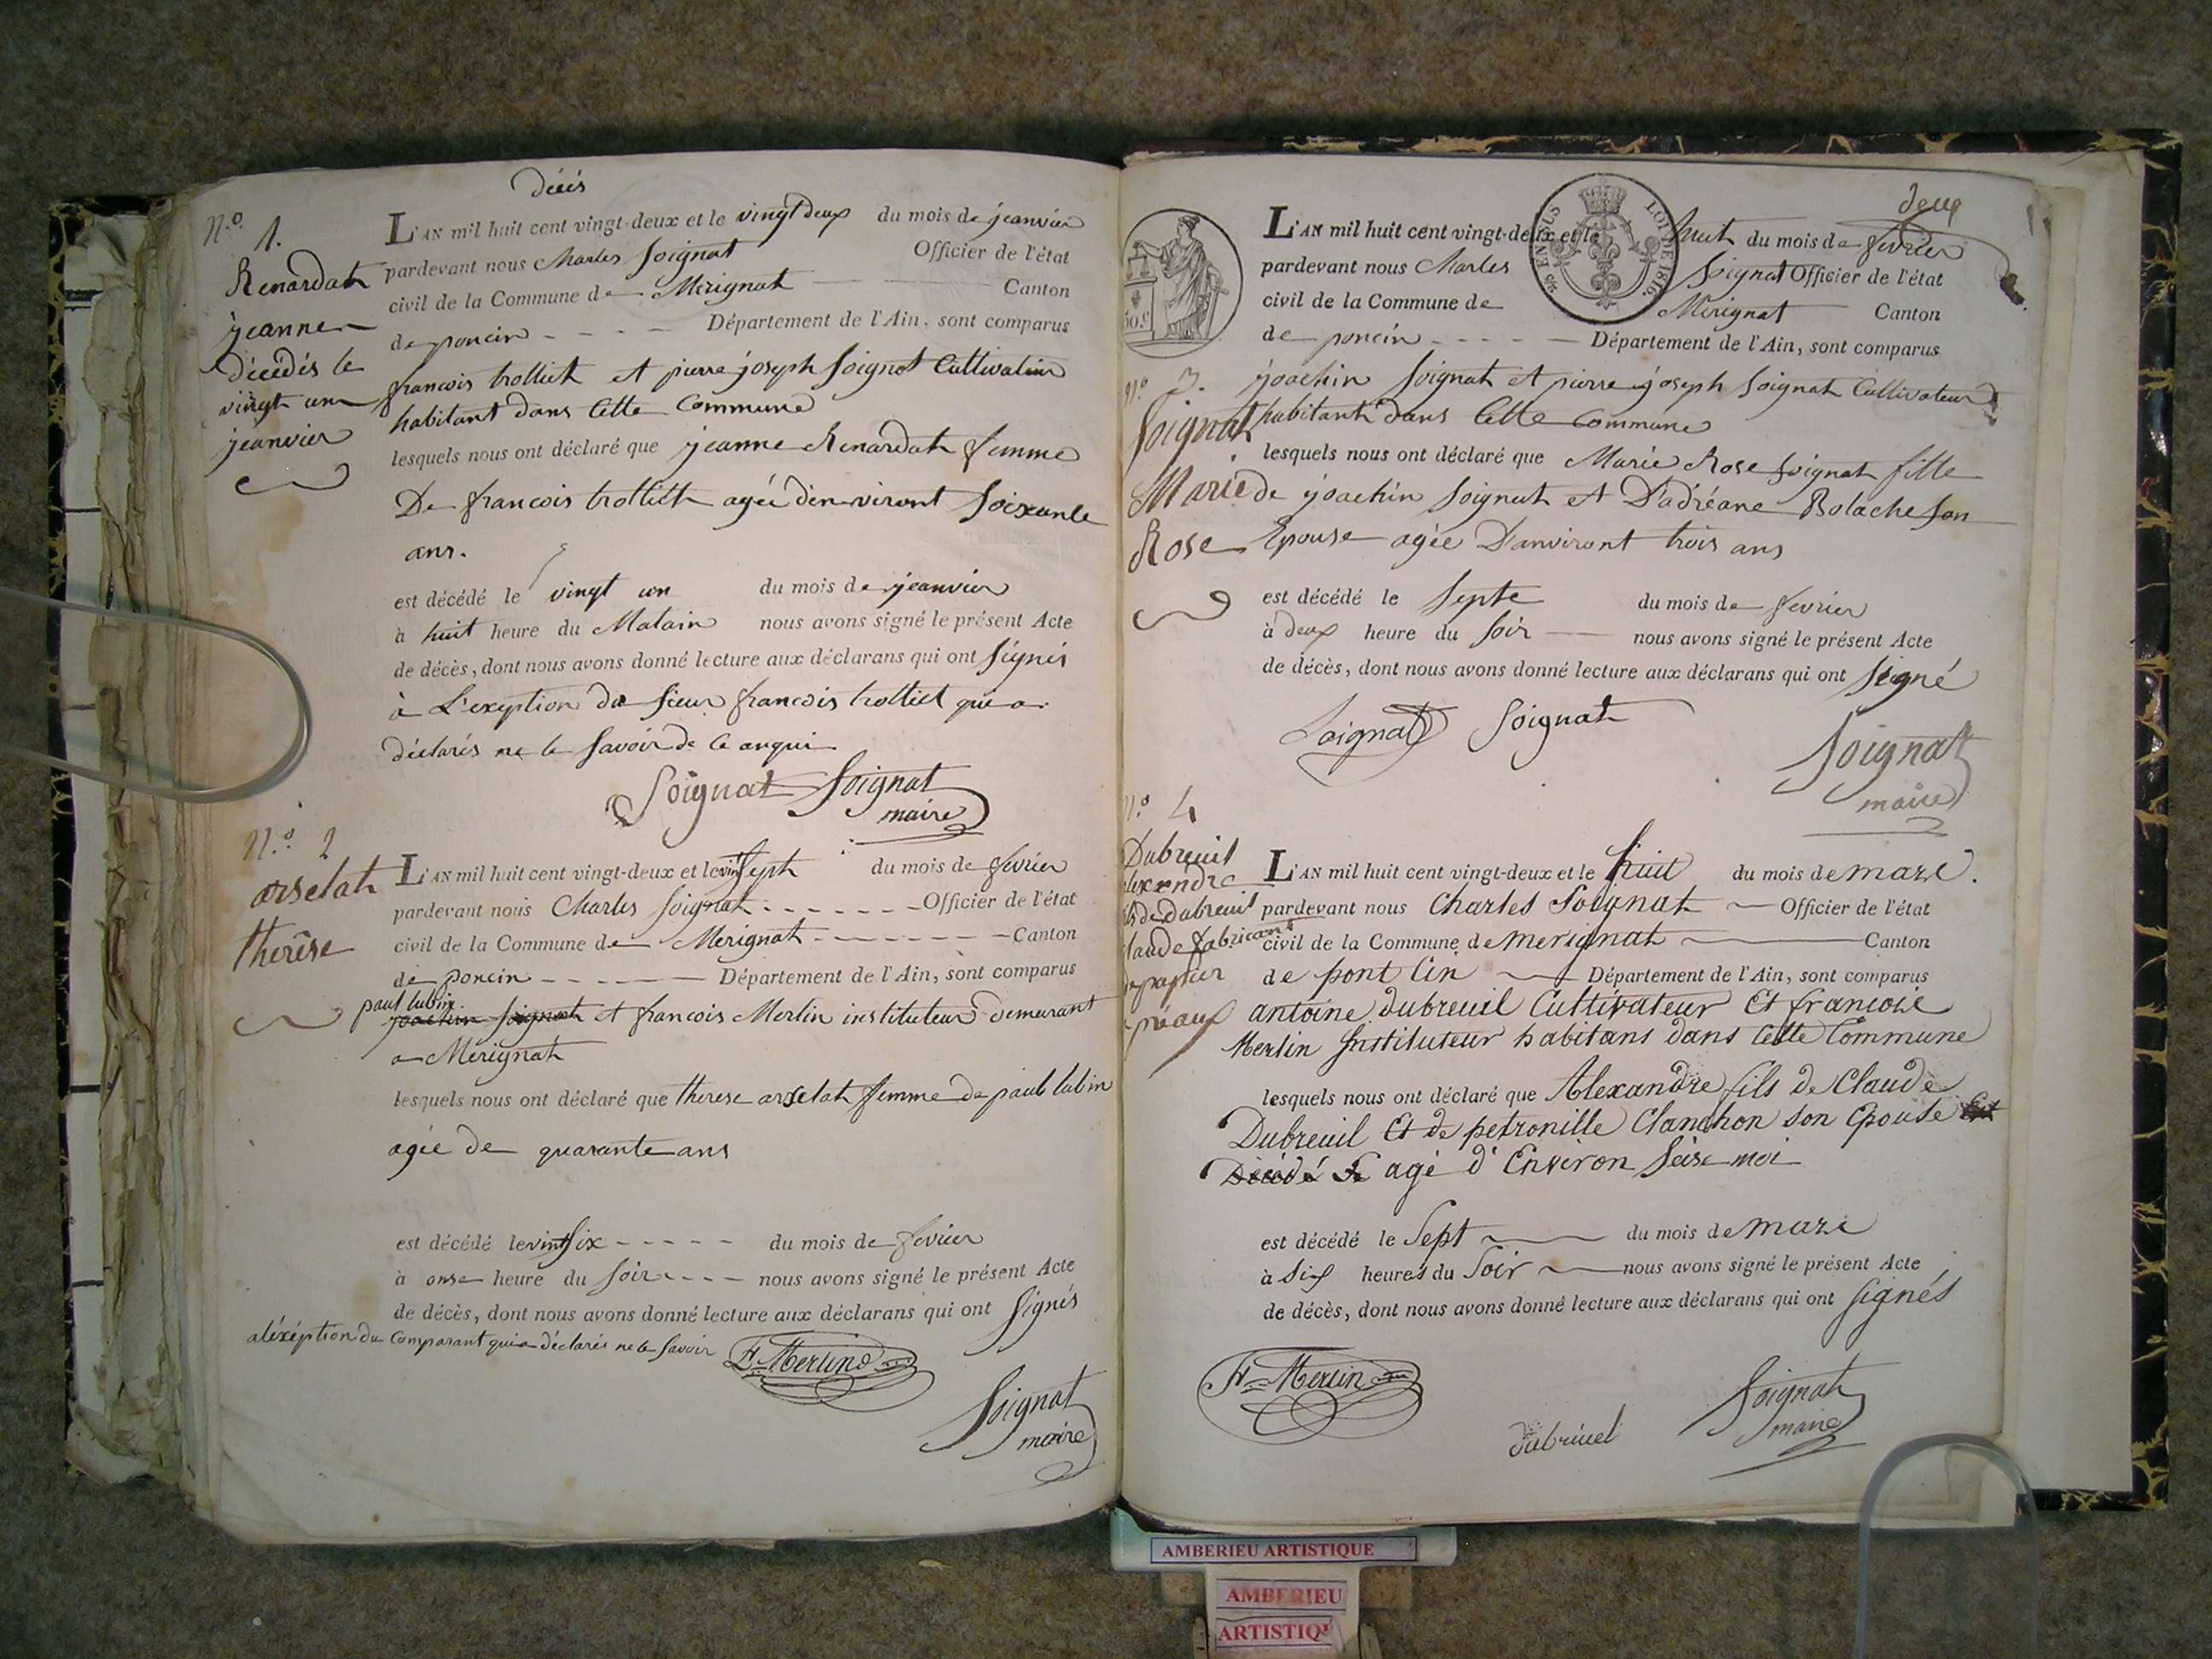 décès
N.o 1.
Renardat
jeanne
décédés le
vingt un
jeanvier
L'AN mil huit cent vingt-deux et le vingt deux du mois de jeanvier
pardevant nous Charles Soignat Officier de l'état
civil de la Commune de Mérignat Canton
de poncin Département de l'Ain, sont comparus
francois trolliet et pierre joseph Soignat Cultivateur
habitant dans Cette Commune
lesquels nous ont déclaré que jeanne Renardat femme
De francois trolliet agée d'environt Soixante
ans.
est décédé le vingt un du mois de jeanvier
à huit heure du Matain nous avons signé le présent Acte
de décès, dont nous avons donné lecture aux déclarans qui ont signés
à L'exeption du Sieur francois trolliet qui a
déclarés ne le Savoir de ce anquis
Soignat Soignat
maire
N.o 2
arselat
therêse
L'AN mil huit cent vingt-deux et le vint Sept du mois de fevrier
pardevant nous Charles Soignat Officier de l'état
civil de la Commune de Merignat Canton
de poncin Département de l'Ain, sont comparus
paul lubin
joachin Soignat et francois Merlin instituteur demurant
a Mérignat
lesquels nous ont déclaré que therese arselat femme de paul lubin
agée de quarante ans
est décédé le vint six du mois de fevrier
à onse heure du Soir nous avons signé le présent Acte
de décès, dont nous avons donné lecture aux déclarans qui ont Signés
aléxéption du Comparant qui a déclarés ne le Savoir
Fs Merlin
Soignat
maire
deux
50.c
EN SUS LOI DE 1816
L'AN mil huit cent vingt-deux et le huit du mois de fevrier
pardevant nous Charles Soignat Officier de l'état
civil de la Commune de Mérignat Canton
de poncin Département de l'Ain, sont comparus
N.o 3.
Soignat
Marie
Rose
joachin Soignat et pierre joseph Soignat Cultivateur
habitant dans Cette Commune
lesquels nous ont déclaré que Marie Rose Soignat fille
de joachin Soignat et D'adréane Bolache son
Epouse agée D'anviront trois ans
est décédé le Septe du mois de fevrier
à deux heure du Soir nous avons signé le présent Acte
de décès, dont nous avons donné lecture aux déclarans qui ont Signé
Soignat Soignat
Soignat
maire
N.o 4
Dubreuil
alexendre
fils de dubreuil
Claude fabricant
de papier
L'AN mil huit cent vingt-deux et le huit du mois de mars.
pardevant nous Charles Soignat Officier de l'état
civil de la Commune de merignat Canton
de pont Cin Département de l'Ain, sont comparus
antoine dubreuil Cultivateur Et francois
Merlin Instituteur habitans dans Cette Commune
lesquels nous ont déclaré que Alexandre fils de Claude
Dubreuil Et de petronille Clanchon son Epouse Est
Décédé Le agé d'Environ Seise moi
est décédé le Sept du mois de mars
à Six heures du Soir nous avons signé le présent Acte
de décès, dont nous avons donné lecture aux déclarans qui ont signés
Fs Merlin
dubriuel
Soignat
maire
AMBERIEU ARTISTIQUE
AMBERIEU
ARTISTIQU